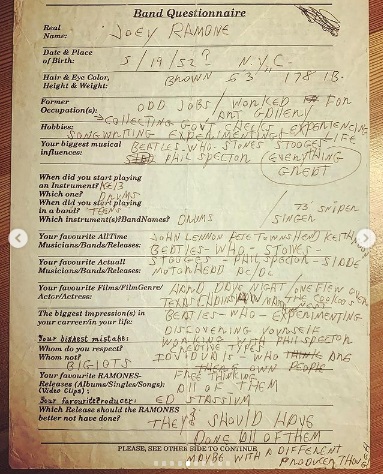 Band Questionnaire
Real Name: JOEY RAMONE
Date & Place of Birth: 5/19/52 N.Y.C.
Hair & Eye Color, Height & Weight: BROWN 178 LB.
Former Occupation(s): ODD JOBS / WORKED FOR ART GALLERY
COLLECTING GOVT CHECKS EXPERIENCING
Hobbies: SONGWRITING EXPERIMENTING LIFE
Your biggest musical influences: BEATLES-WHO-STONES STOOGES
PHIL SPECTOR (EVERYTHING GREAT)
When did you start playing an Instrument?
Which one? DRUMS
When did you start playing in a band? TEENS
Which instrument(s)?BandNames? DRUMS SINGER '73 SNIPER
Your favourite AllTime Musicians/Bands/Releases: JOHN LENNON PETE TOWNSHEND KEITH
BEATLES-WHO STONES-
Your favourite Actuall Musicians/Bands/Releases: STOOGES - PHIL SPECTOR -
MOTORHEAD AC/DC
Your favourite Films/FilmGenre/ Actor/Actress: HARD DAYS NIGHT / ONE FLEW OVER
TEXAS CHAINSAW THE CUCKOOS
The biggest impression(s) in your carreer/in your life: BEATLES-WHO-EXPERIMENTING
DISCOVERING YOURSELF
Your biggest mistake: WORKING WITH PHIL SPECTOR
Whom do you respect? CREATIVE TYPES
Whom not? BIGIOTS INDIVIDUALS - WHO THINK ARE
THERE OWN PEOPLE
FREE THINKING
Your favourite RAMONES- Releases (Albums/Singles/Songs):
(Video Clips): ALL OF THEM
Your favourite Producer: ED STASSIUM
Which Release should the RAMONES better not have done? THEY SHOULD HAVE
DONE ALL OF THEM
MAYBE WITH A DIFFERENT
PRODUCER THOUGH
PLEASE, SEE OTHER SIDE TO CONTINUE